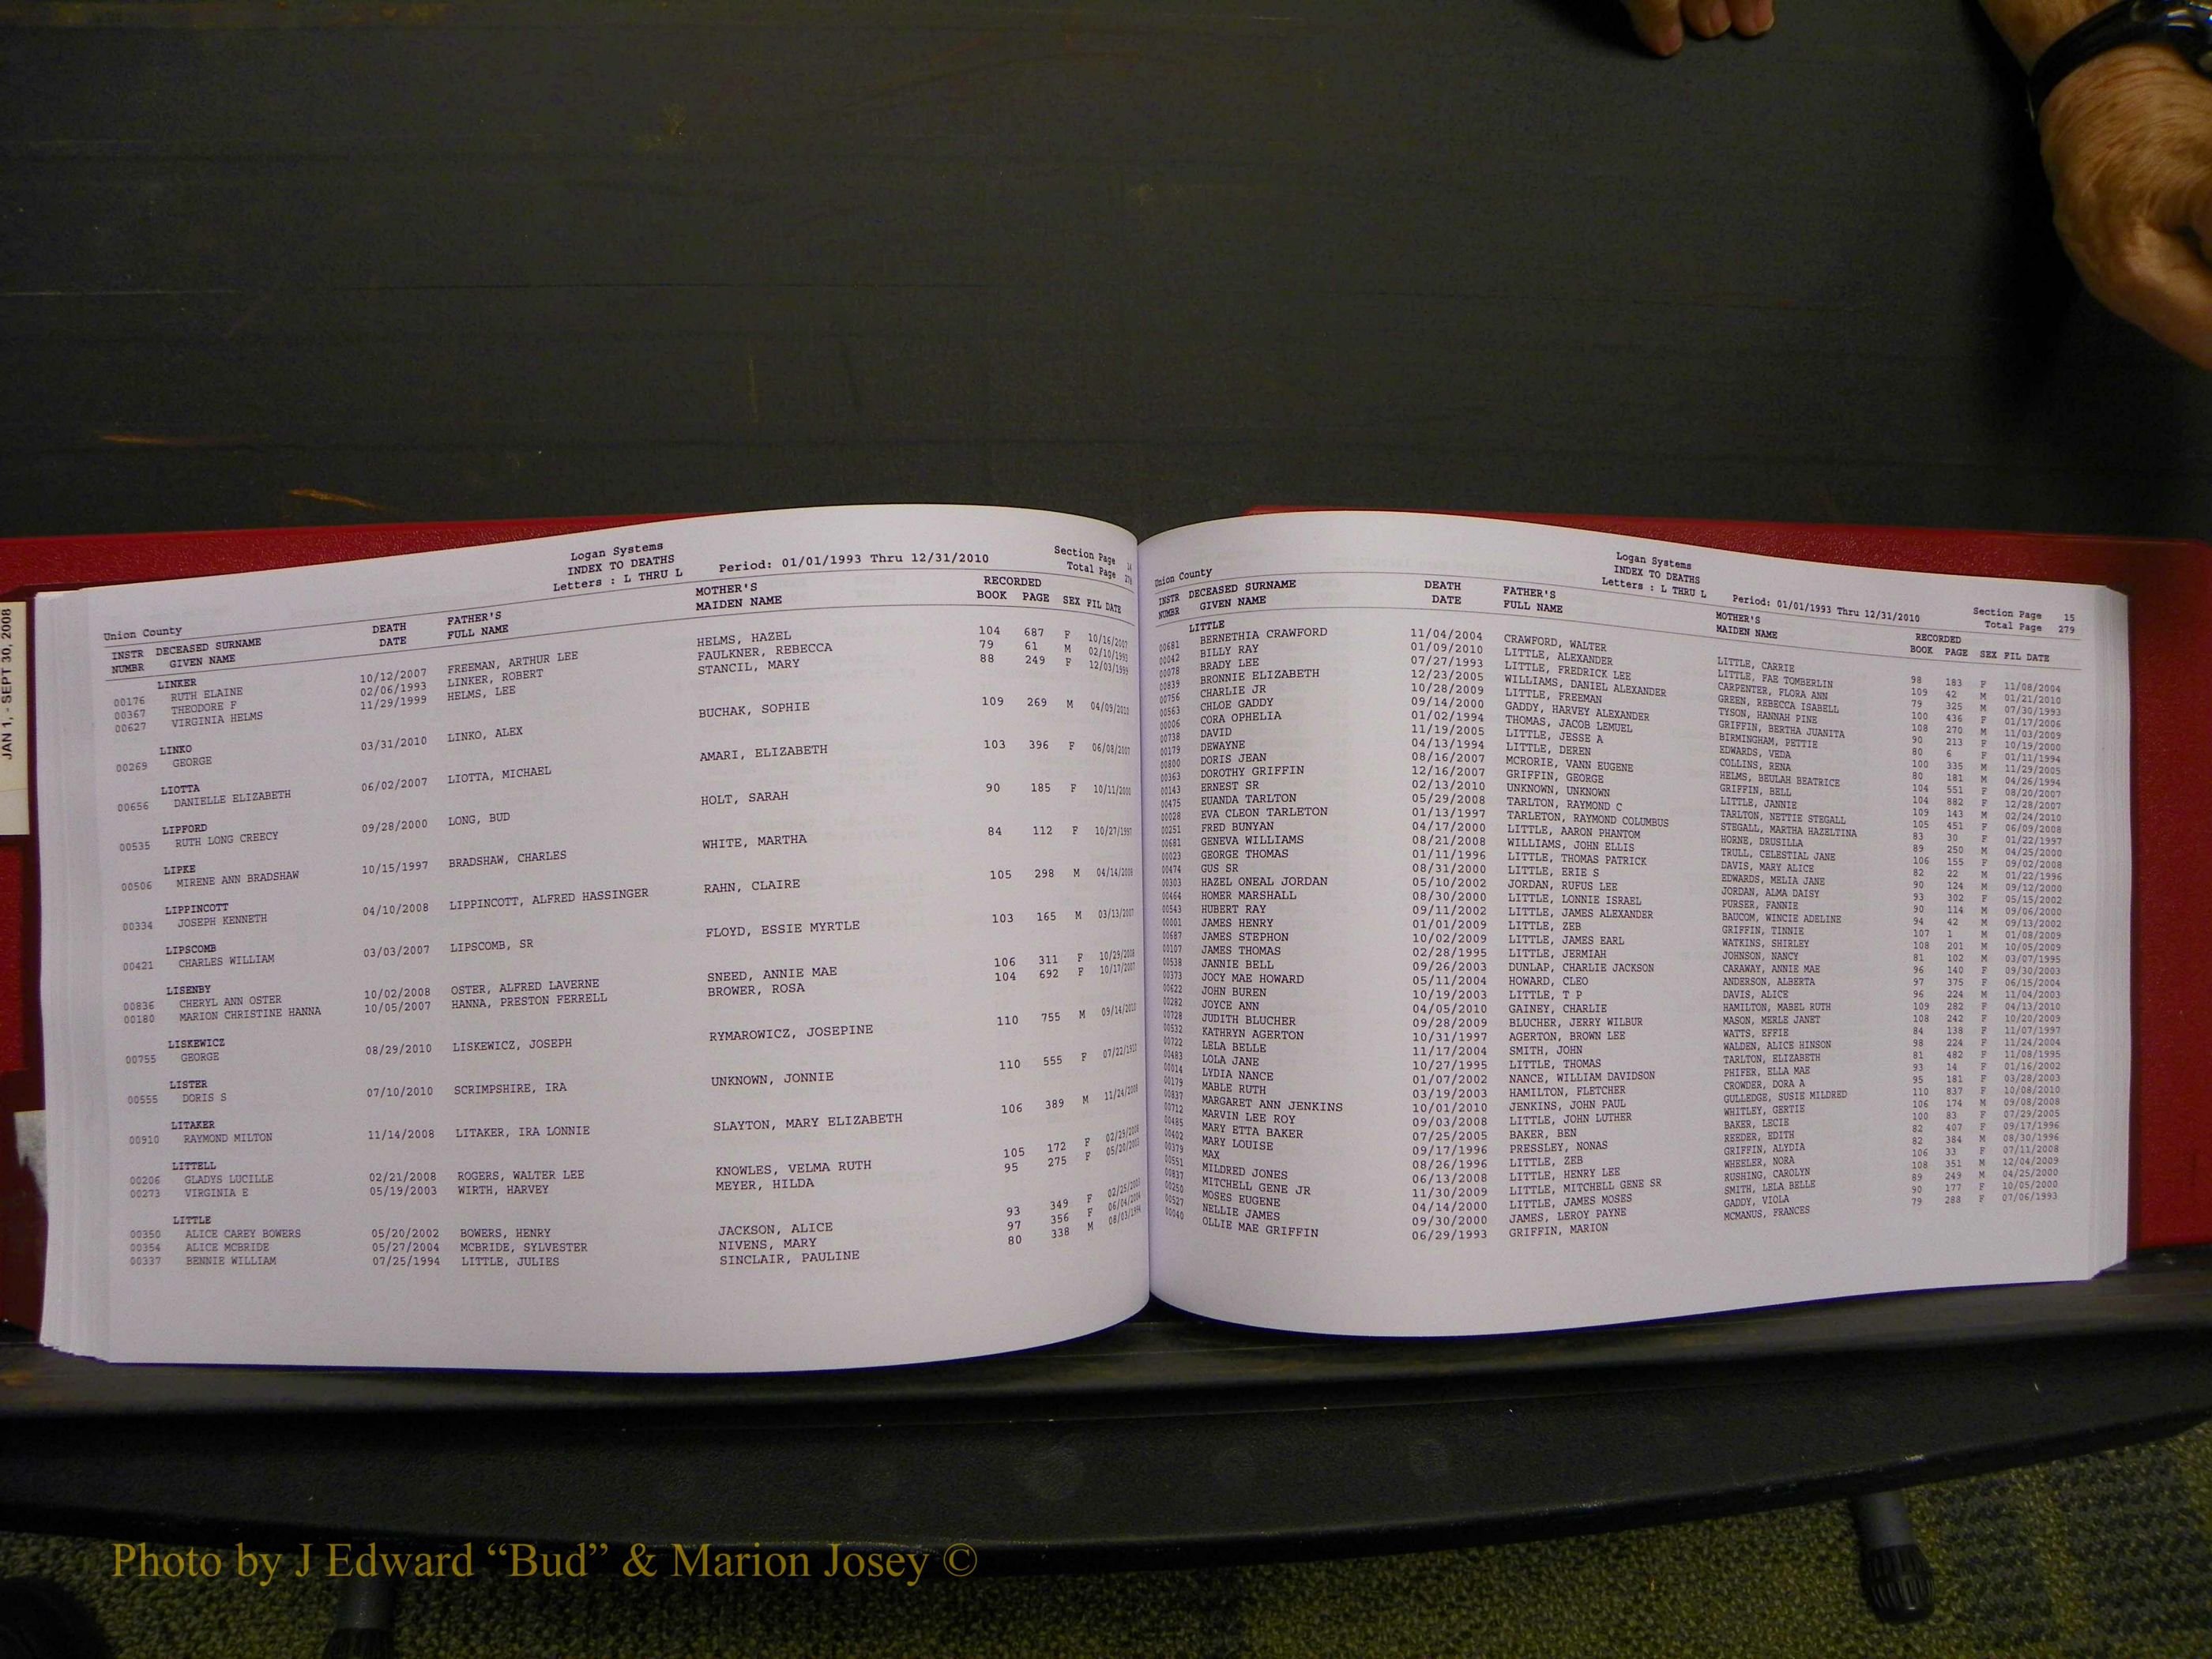 JAN 1, - SEPT 30, 2008
Union County
Logan Systems
INDEX TO DEATHS
Letters : L THRU L
Period: 01/01/1993 Thru 12/31/2010
Section Page 14
Total Page 278
INSTR DECEASED SURNAME DEATH FATHER'S MOTHER'S RECORDED
NUMBR GIVEN NAME DATE FULL NAME MAIDEN NAME BOOK PAGE SEX FIL DATE
LINKER
00176 RUTH ELAINE 10/12/2007 FREEMAN, ARTHUR LEE HELMS, HAZEL 104 687 F 10/16/2007
00367 THEODORE F 02/06/1993 LINKER, ROBERT FAULKNER, REBECCA 79 61 M 02/10/1993
00627 VIRGINIA HELMS 11/29/1999 HELMS, LEE STANCIL, MARY 88 249 F 12/03/1999
LINKO
00269 GEORGE 03/31/2010 LINKO, ALEX BUCHAK, SOPHIE 109 269 M 04/09/2010
LIOTTA
00656 DANIELLE ELIZABETH 06/02/2007 LIOTTA, MICHAEL AMARI, ELIZABETH 103 396 F 06/08/2007
LIPFORD
00535 RUTH LONG CREECY 09/28/2000 LONG, BUD HOLT, SARAH 90 185 F 10/11/2000
LIPKE
00506 MIRENE ANN BRADSHAW 10/15/1997 BRADSHAW, CHARLES WHITE, MARTHA 84 112 F 10/27/1997
LIPPINCOTT
00334 JOSEPH KENNETH 04/10/2008 LIPPINCOTT, ALFRED HASSINGER RAHN, CLAIRE 105 298 M 04/14/2008
LIPSCOMB
00421 CHARLES WILLIAM 03/03/2007 LIPSCOMB, SR FLOYD, ESSIE MYRTLE 103 165 M 03/13/2007
LISENBY
00836 CHERYL ANN OSTER 10/02/2008 OSTER, ALFRED LAVERNE SNEED, ANNIE MAE 106 311 F 10/29/2008
00180 MARION CHRISTINE HANNA 10/05/2007 HANNA, PRESTON FERRELL BROWER, ROSA 104 692 F 10/17/2007
LISKEWICZ
00755 GEORGE 08/29/2010 LISKEWICZ, JOSEPH RYMAROWICZ, JOSEPINE 110 755 M 09/14/2010
LISTER
00555 DORIS S 07/10/2010 SCRIMPSHIRE, IRA UNKNOWN, JONNIE 110 555 F
LITAKER
00910 RAYMOND MILTON 11/14/2008 LITAKER, IRA LONNIE SLAYTON, MARY ELIZABETH 106 389 M 11/24/2008
LITTELL
00206 GLADYS LUCILLE 02/21/2008 ROGERS, WALTER LEE KNOWLES, VELMA RUTH 105 172 F 02/29/2008
00273 VIRGINIA E 05/19/2003 WIRTH, HARVEY MEYER, HILDA 95 275 F 05/20/2003
LITTLE
00350 ALICE CAREY BOWERS 05/20/2002 BOWERS, HENRY JACKSON, ALICE 93 349 F
00354 ALICE MCBRIDE 05/27/2004 MCBRIDE, SYLVESTER NIVENS, MARY 97 356 F 06/04/2004
00337 BENNIE WILLIAM 07/25/1994 LITTLE, JULIES SINCLAIR, PAULINE 80 338 M 08/03/1994
Union County
Logan Systems
INDEX TO DEATHS
Letters : L THRU L
Period: 01/01/1993 Thru 12/31/2010
Section Page 15
Total Page 279
INSTR DECEASED SURNAME DEATH FATHER'S MOTHER'S RECORDED
NUMBR GIVEN NAME DATE FULL NAME MAIDEN NAME BOOK PAGE SEX FIL DATE
LITTLE
00681 BERNETHIA CRAWFORD 11/04/2004 CRAWFORD, WALTER LITTLE, CARRIE 98 183 F 11/08/2004
00042 BILLY RAY 01/09/2010 LITTLE, ALEXANDER LITTLE, FAE TOMBERLIN 109 42 M 01/21/2010
00078 BRADY LEE 07/27/1993 LITTLE, FREDRICK LEE CARPENTER, FLORA ANN 79 325 M 07/30/1993
00839 BRONNIE ELIZABETH 12/23/2005 WILLIAMS, DANIEL ALEXANDER GREEN, REBECCA ISABELL 100 436 F 01/17/2006
00756 CHARLIE JR 10/28/2009 LITTLE, FREEMAN TYSON, HANNAH PINE 108 270 M 11/03/2009
00563 CHLOE GADDY 09/14/2000 GADDY, HARVEY ALEXANDER GRIFFIN, BERTHA JUANITA 90 213 F 10/19/2000
00006 CORA OPHELIA 01/02/1994 THOMAS, JACOB LEMUEL BIRMINGHAM, PETTIE 80 6 F 01/11/1994
00738 DAVID 11/19/2005 LITTLE, JESSE A EDWARDS, VEDA 100 335 M 11/29/2005
00179 DEWAYNE 04/13/1994 LITTLE, DEREN COLLINS, RENA 80 181 M 04/26/1994
00800 DORIS JEAN 08/16/2007 MCRORIE, VANN EUGENE HELMS, BEULAH BEATRICE 104 551 F 08/20/2007
00363 DOROTHY GRIFFIN 12/16/2007 GRIFFIN, GEORGE GRIFFIN, BELL 104 882 F 12/28/2007
00143 ERNEST SR 02/13/2010 UNKNOWN, UNKNOWN LITTLE, JANNIE 109 143 M 02/24/2010
00475 EUANDA TARLTON 05/29/2008 TARLTON, RAYMOND C TARLTON, NETTIE STEGALL 105 451 F 06/09/2008
00028 EVA CLEON TARLETON 01/13/1997 TARLETON, RAYMOND COLUMBUS STEGALL, MARTHA HAZELTINA 83 30 F 01/22/1997
00251 FRED BUNYAN 04/17/2000 LITTLE, AARON PHANTOM HORNE, DRUSILLA 89 250 M 04/25/2000
00681 GENEVA WILLIAMS 08/21/2008 WILLIAMS, JOHN ELLIS TRULL, CELESTIAL JANE 106 155 F 09/02/2008
00023 GEORGE THOMAS 01/11/1996 LITTLE, THOMAS PATRICK DAVIS, MARY ALICE 82 22 M 01/22/1996
00474 GUS SR 08/31/2000 LITTLE, ERIE S EDWARDS, MELIA JANE 90 124 M 09/12/2000
00303 HAZEL ONEAL JORDAN 05/10/2002 JORDAN, RUFUS LEE JORDAN, ALMA DAISY 93 302 F 05/15/2002
00464 HOMER MARSHALL 08/30/2000 LITTLE, LONNIE ISRAEL PURSER, FANNIE 90 114 M 09/06/2000
00543 HUBERT RAY 09/11/2002 LITTLE, JAMES ALEXANDER BAUCOM, WINCIE ADELINE 94 42 M 09/13/2002
00001 JAMES HENRY 01/01/2009 LITTLE, ZEB GRIFFIN, TINNIE 107 1 M 01/08/2009
00687 JAMES STEPHON 10/02/2009 LITTLE, JAMES EARL WATKINS, SHIRLEY 108 201 M 10/05/2009
00107 JAMES THOMAS 02/28/1995 LITTLE, JERMIAH JOHNSON, NANCY 81 102 M 03/07/1995
00538 JANNIE BELL 09/26/2003 DUNLAP, CHARLIE JACKSON CARAWAY, ANNIE MAE 96 140 F 09/30/2003
00373 JOCY MAE HOWARD 05/11/2004 HOWARD, CLEO ANDERSON, ALBERTA 97 375 F 06/15/2004
00622 JOHN BUREN 10/19/2003 LITTLE, T P DAVIS, ALICE 96 224 M 11/04/2003
00282 JOYCE ANN 04/05/2010 GAINEY, CHARLIE HAMILTON, MABEL RUTH 109 282 F 04/13/2010
00728 JUDITH BLUCHER 09/28/2009 BLUCHER, JERRY WILBUR MASON, MERLE JANET 108 242 F 10/20/2009
00532 KATHRYN AGERTON 10/31/1997 AGERTON, BROWN LEE WATTS, EFFIE 84 138 F 11/07/1997
00722 LELA BELLE 11/17/2004 SMITH, JOHN WALDEN, ALICE HINSON 98 224 F 11/24/2004
00483 LOLA JANE 10/27/1995 LITTLE, THOMAS TARLTON, ELIZABETH 81 482 F 11/08/1995
00014 LYDIA NANCE 01/07/2002 NANCE, WILLIAM DAVIDSON PHIFER, ELLA MAE 93 14 F 01/16/2002
00179 MABLE RUTH 03/19/2003 HAMILTON, FLETCHER CROWDER, DORA A 95 181 F 03/28/2003
00837 MARGARET ANN JENKINS 10/01/2010 JENKINS, JOHN PAUL GULLEDGE, SUSIE MILDRED 110 837 F 10/08/2010
00712 MARVIN LEE ROY 09/03/2008 LITTLE, JOHN LUTHER WHITLEY, GERTIE 106 174 M 09/08/2008
00485 MARY ETTA BAKER 07/25/2005 BAKER, BEN BAKER, LECIE 100 83 F 07/29/2005
00402 MARY LOUISE 09/17/1996 PRESSLEY, NONAS REEDER, EDITH 82 407 F 09/17/1996
00379 MAX 08/26/1996 LITTLE, ZEB GRIFFIN, ALYDIA 82 384 M 08/30/1996
00551 MILDRED JONES 06/13/2008 LITTLE, HENRY LEE WHEELER, NORA 106 33 F 07/11/2008
00837 MITCHELL GENE JR 11/30/2009 LITTLE, MITCHELL GENE SR RUSHING, CAROLYN 108 351 M 12/04/2009
00250 MOSES EUGENE 04/14/2000 LITTLE, JAMES MOSES SMITH, LELA BELLE 89 249 M 04/25/2000
00527 NELLIE JAMES 09/30/2000 JAMES, LEROY PAYNE GADDY, VIOLA 90 177 F 10/05/2000
00040 OLLIE MAE GRIFFIN 06/29/1993 GRIFFIN, MARION MCMANUS, FRANCES 79 288 F 07/06/1993
Photo by J Edward “Bud” & Marion Josey ©